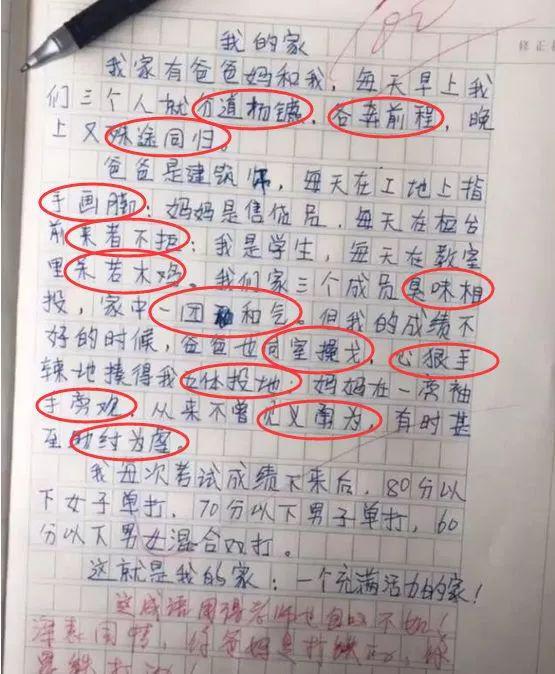 我的家
我家有爸爸妈和我，每天早上我
们三个人就分道扬镳，各奔前程，晚
上又殊途同归。
爸爸是建筑师，每天在工地上指
手画脚；妈妈是售货员，每天在柜台
前来者不拒；我是学生，每天在教室
里呆若木鸡。我们家三个成员臭味相
投，家中一团和气。但我的成绩不
好的时候，爸爸也同室操戈，心狠手
辣地揍得我五体投地。妈妈在一旁袖
手旁观，从来不曾见义勇为，有时甚
至助纣为虐。
我每次考试成绩下来后，80分以
下女子单打，70分以下男子单打，60
分以下男女混合双打。
这就是我的家：一个充满活力的家！
这成语用得老师也自叹不如！
深表同情，你爸妈是打铁
修正